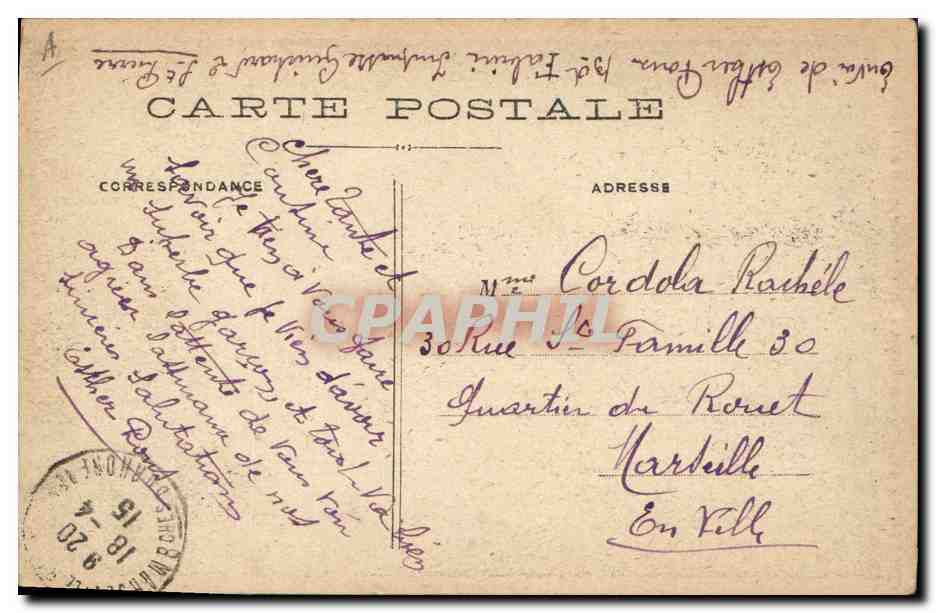 A
Envoi de Esther Roux Bd Fabrici Impasse Guichard 2 St Pierre
CARTE POSTALE
CORRESPONDANCE
ADRESSE
Chere Tante et
Cousine
Je viens a vous faire
savoir que je viens d'avoir
un superbe garçon et tout va bien
Dans l'attente de vous voir
agréer l'attmana de nos
sinceres salutations
Esther Roux
Mme Cordola Rachéle
30 Rue Ste Famille 30
Quartier du Rouet
Marseille
En Ville
CPAPHIL
9 20
18 - 4
15
BCHES DU RHONE